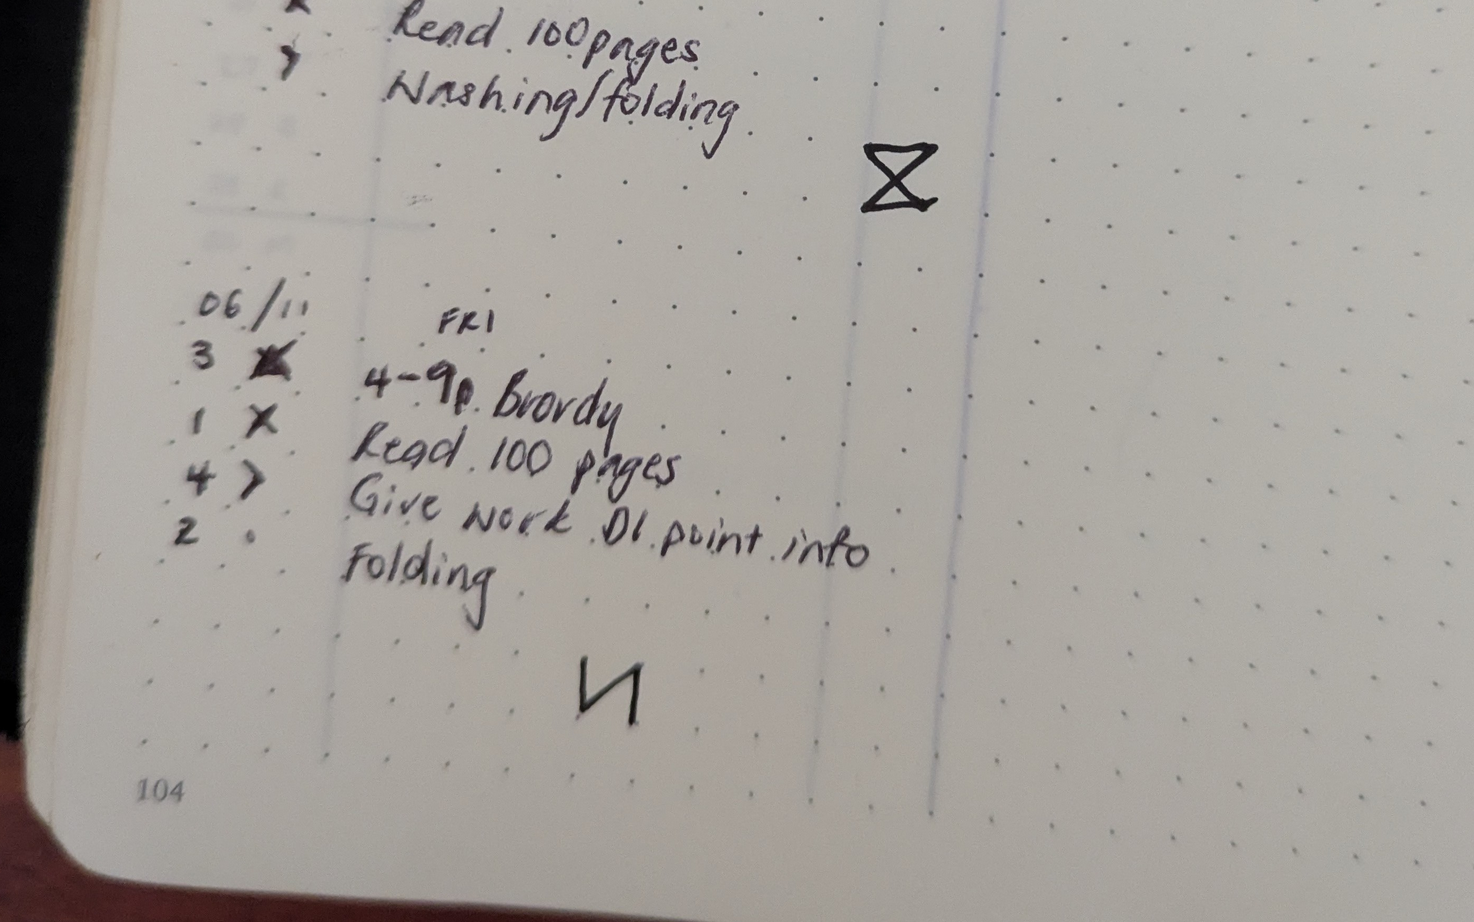 Read 100 pages
> Washing/folding
06/11 FRI
3 4-9p Brordy
1 x Read 100 pages
4 > Give work DL point info
2 . Folding
104